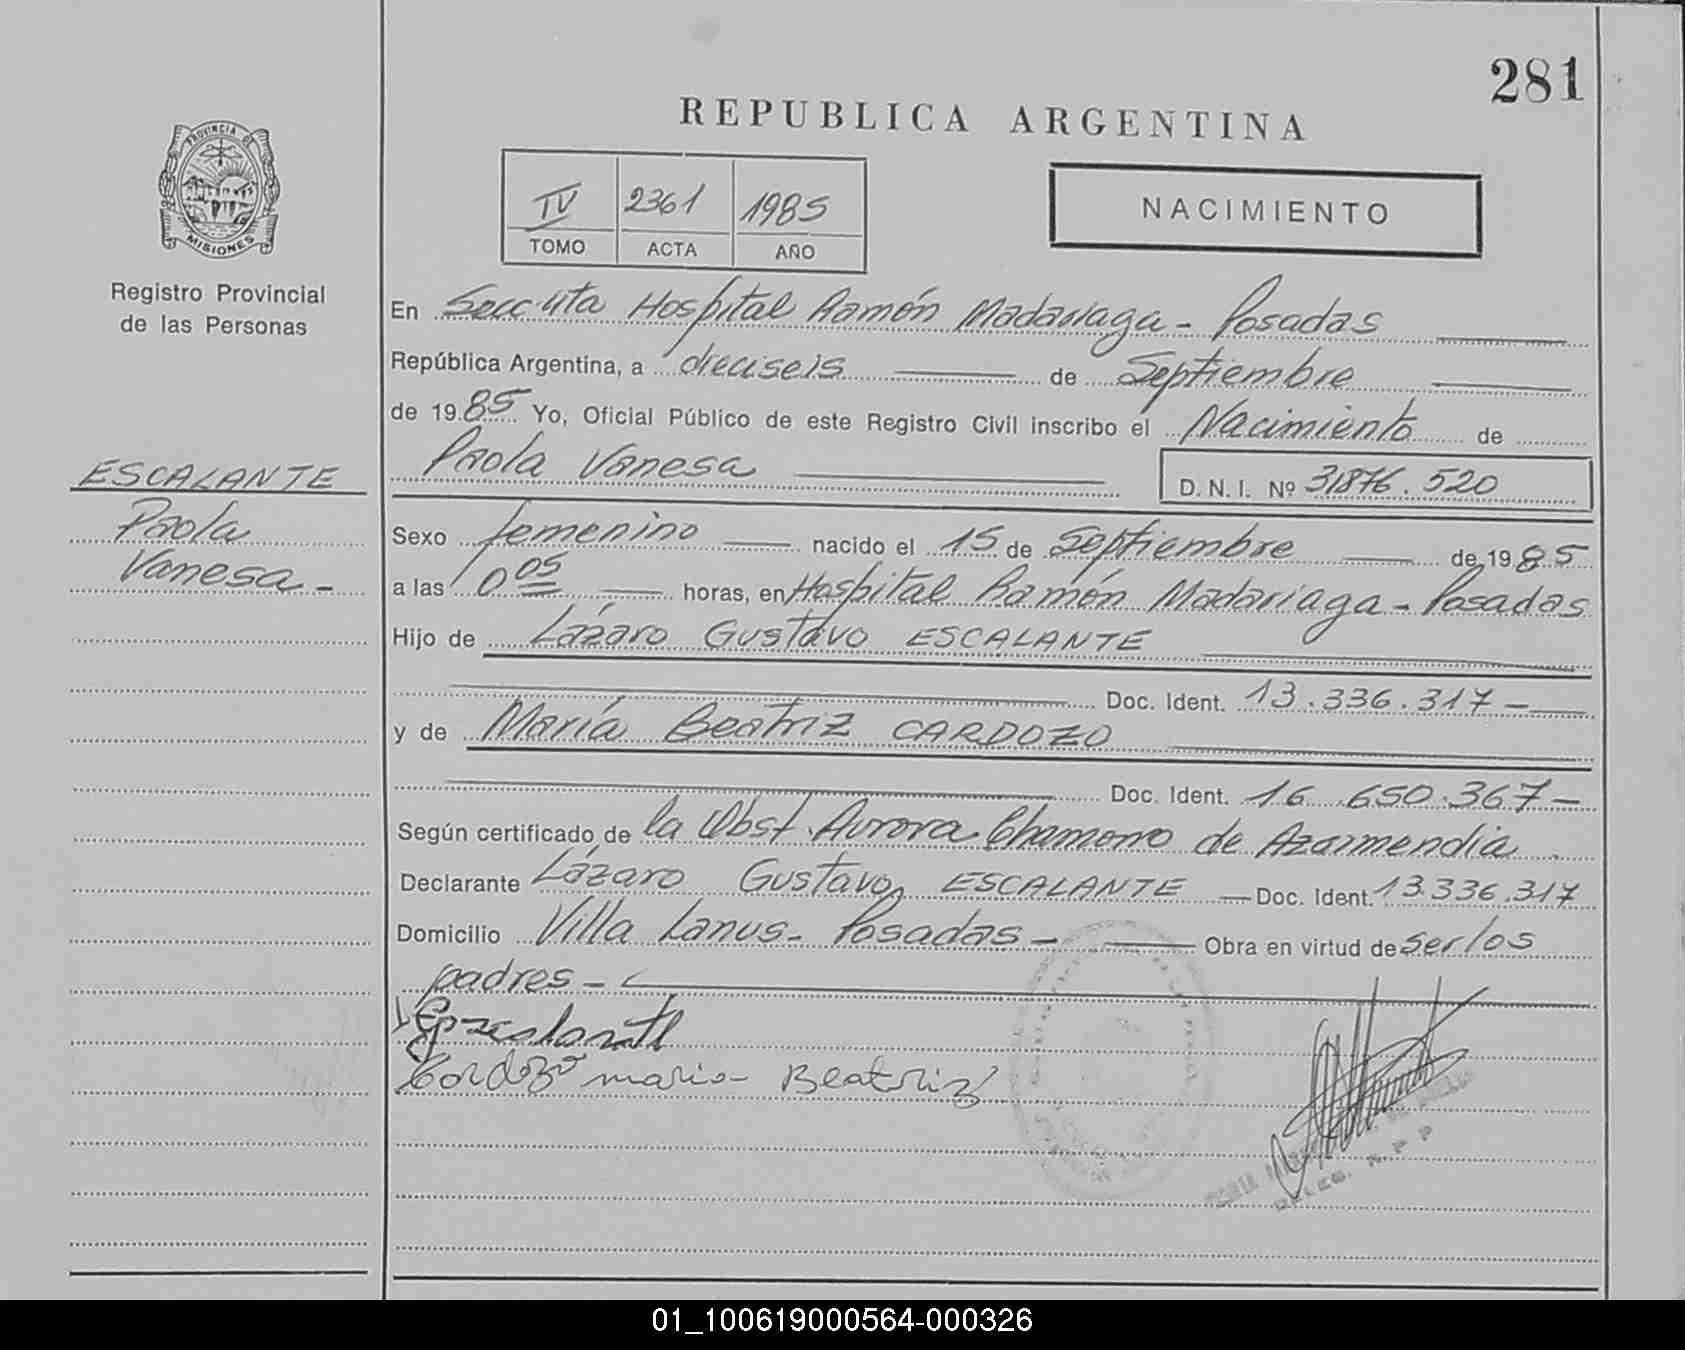 281
REPUBLICA ARGENTINA
PROVINCIA DE
MISIONES
Registro Provincial
de las Personas
IV 2361 1985
TOMO ACTA AÑO
NACIMIENTO
En Secc 4ta Hospital Ramón Madariaga - Posadas
República Argentina, a dieciseis de Septiembre
de 1985 Yo, Oficial Público de este Registro Civil inscribo el Nacimiento de
Paola Vanesa D. N. I. Nº 31876.520
ESCALANTE
Paola
Vanesa -
Sexo femenino nacido el 15 de Septiembre de 1985
a las 0 05 horas, en Hospital Ramón Madariaga - Posadas
Hijo de Lázaro Gustavo ESCALANTE
Doc. Ident. 13.336.317 -
y de María Beatriz CARDOZO
Doc. Ident. 16.650.367 -
Según certificado de la Obst. Aurora Chamorro de Azarmendia
Declarante Lázaro Gustavo ESCALANTE - Doc. Ident. 13.336.317
Domicilio Villa Lanus - Posadas - Obra en virtud de ser los
padres -
Cardozo maria Beatriz
DELEG. R. P. P
01_100619000564-000326